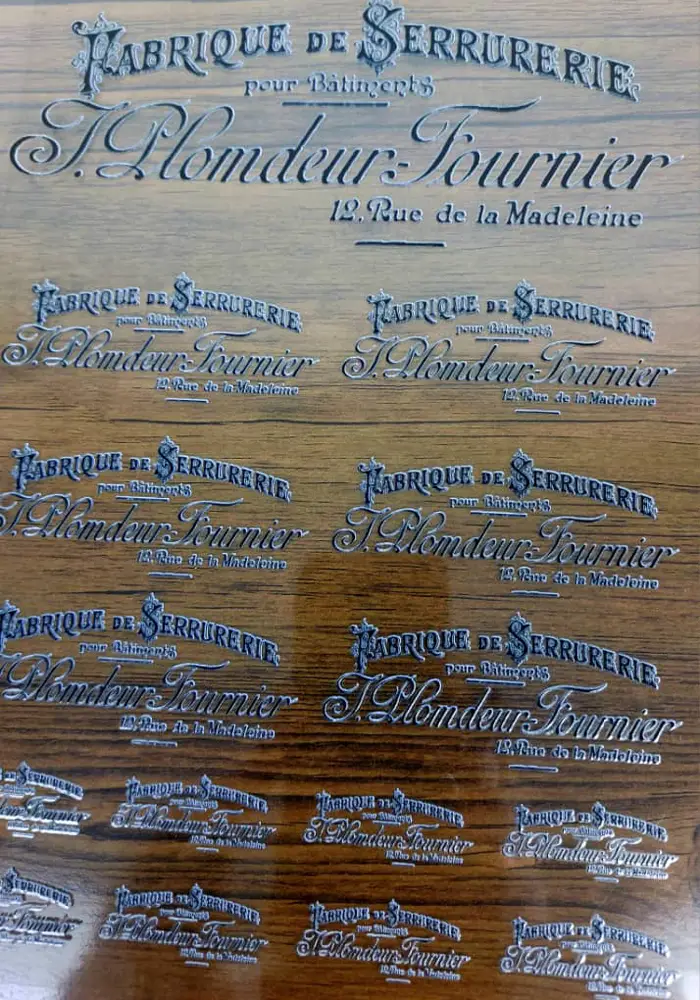 FABRIQUE DE SERRURERIE
pour Bâtiments
J. Plomdeur-Fournier
12, Rue de la Madeleine
FABRIQUE DE SERRURERIE
pour Bâtiments
J. Plomdeur-Fournier
12, Rue de la Madeleine
FABRIQUE DE SERRURERIE
pour Bâtiments
J. Plomdeur-Fournier
12, Rue de la Madeleine
FABRIQUE DE SERRURERIE
pour Bâtiments
J. Plomdeur-Fournier
12, Rue de la Madeleine
FABRIQUE DE SERRURERIE
pour Bâtiments
J. Plomdeur-Fournier
12, Rue de la Madeleine
FABRIQUE DE SERRURERIE
pour Bâtiments
J. Plomdeur-Fournier
12, Rue de la Madeleine
FABRIQUE DE SERRURERIE
pour Bâtiments
J. Plomdeur-Fournier
12, Rue de la Madeleine
DE SERRURERIE
Fournier
de la Madeleine
FABRIQUE DE SERRURERIE
pour Bâtiments
J. Plomdeur-Fournier
12, Rue de la Madeleine
FABRIQUE DE SERRURERIE
pour Bâtiments
J. Plomdeur-Fournier
12, Rue de la Madeleine
FABRIQUE DE SERRURERIE
pour Bâtiments
J. Plomdeur-Fournier
12, Rue de la Madeleine
SERRURERIE
Fournier
la Madeleine
FABRIQUE DE SERRURERIE
pour Bâtiments
J. Plomdeur-Fournier
12, Rue de la Madeleine
FABRIQUE DE SERRURERIE
pour Bâtiments
J. Plomdeur-Fournier
12, Rue de la Madeleine
FABRIQUE DE SERRURERIE
pour Bâtiments
J. Plomdeur-Fournier
12, Rue de la Madeleine